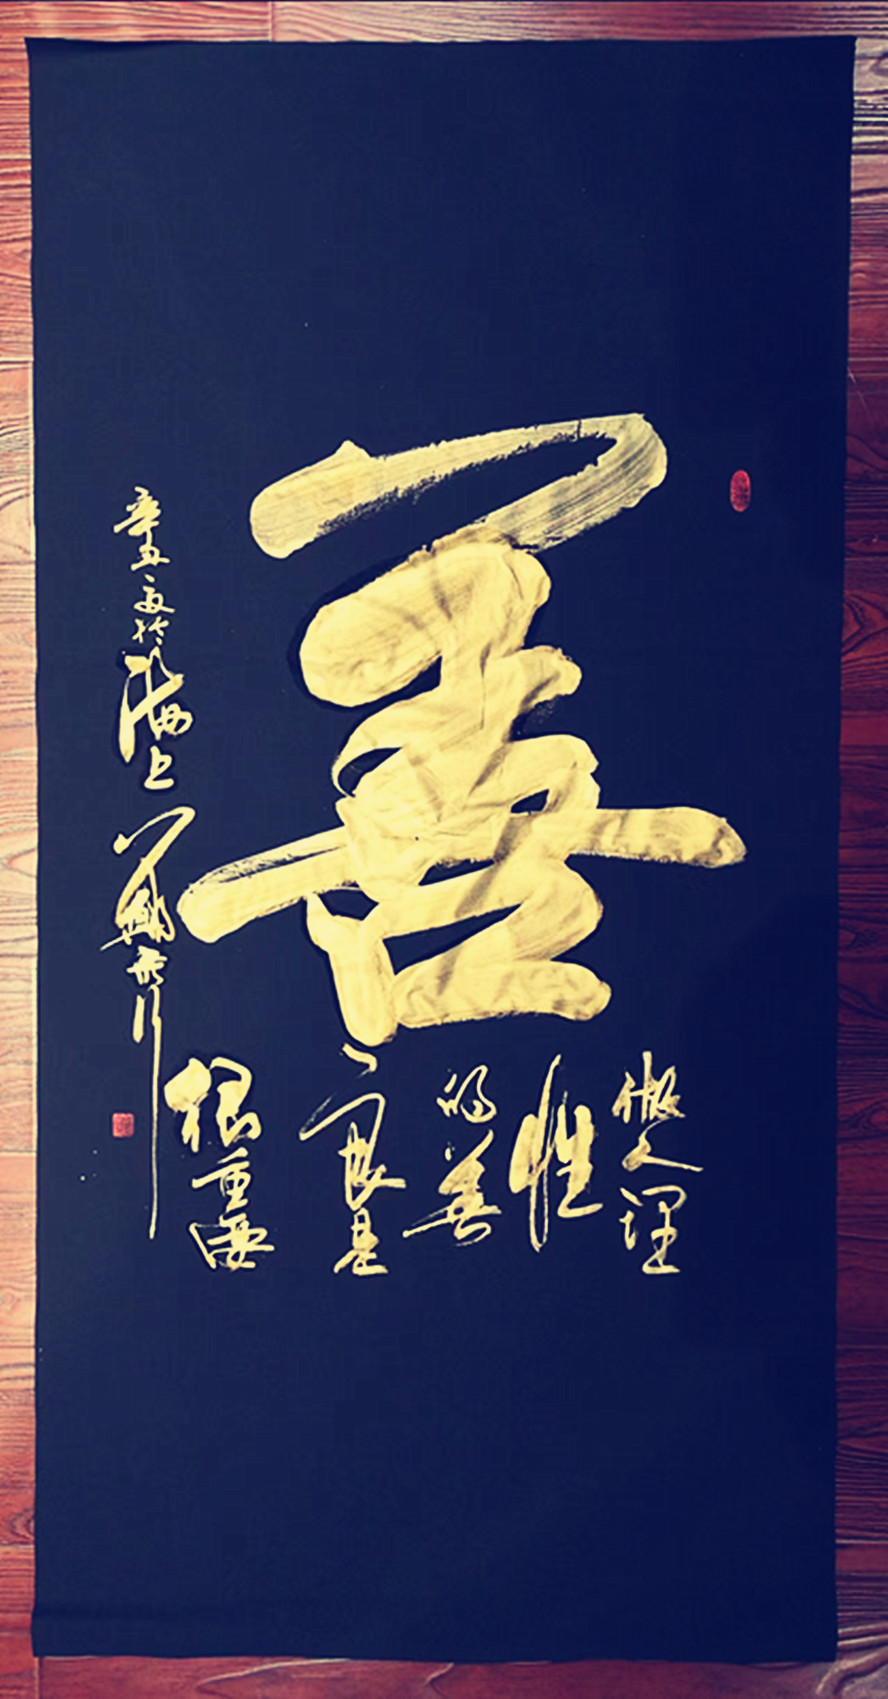 善
做人理
性
的善
良是
很重要
辛丑夏於
海上